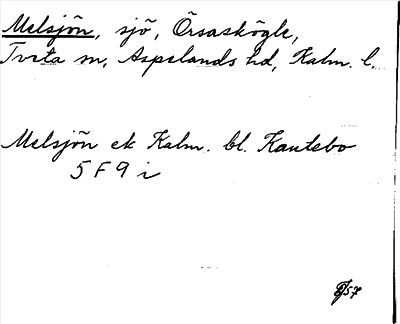 Melsjön, sjö, Örsaskögle,
Tveta sn, Aspelands hd, Kalm. l.
Melsjön ek Kalm. bl. Kantebo
5 F 9 i
57